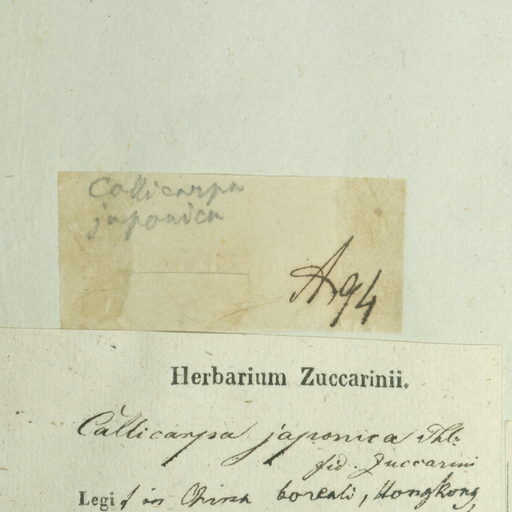 Callicarpa
japonica
A, 94
Herbarium Zuccarinii.
Callicarpa japonica Thb.
fid. Zuccarini
Legi in China boreali, Hongkong,